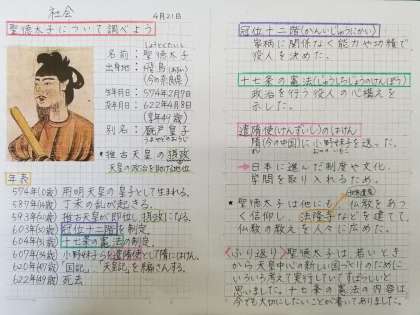 社会
4月21日
聖徳太子について調べよう
しょうとくたいし
名前：聖徳太子
出身地：飛鳥(あすか)
(今の奈良県)
生年月日：574年2月7日
没年月日：622年4月8日
(享年49歳)
別名：厩戸皇子
★推古天皇の摂政
天皇の政治を助ける地位
年表
574年(0歳) 用明天皇の皇子として生まれる。
587年(14歳) 丁未の乱が起きる。
593年(20歳) 推古天皇が即位し、摂政になる。
603年(30歳) 冠位十二階を制定。
604年(31歳) 十七条の憲法の制定。
607年(34歳) 小野妹子らを遣隋使として隋にはけん。
620年(47歳) 「国記」、「天皇記」を編さんする。
622年(49歳) 死去
冠位十二階(かんいじゅうにかい)
家柄に関係なく能力や功績で
役人を決めた。
十七条の憲法(じゅうしちじょうのけんぽう)
政治を行う役人の心構えを
示した。
遣隋使(けんずいし)のはけん
隋(今の中国)に小野妹子を送った。
→日本に進んだ制度や文化、
学問を取り入れるため。
世界遺産
★聖徳太子は他にも、仏教をあ
つく信仰し、法隆寺などを建て、
仏教の教えを人々に広めた。
〈ふり返り〉聖徳太子は、若いとき
から天皇中心の新しい国づくりのために
いろいろ考えて実行していてすばらしいと
思いました。十七条の憲法の内容は
今でも大切にしたいことが書いてありました。